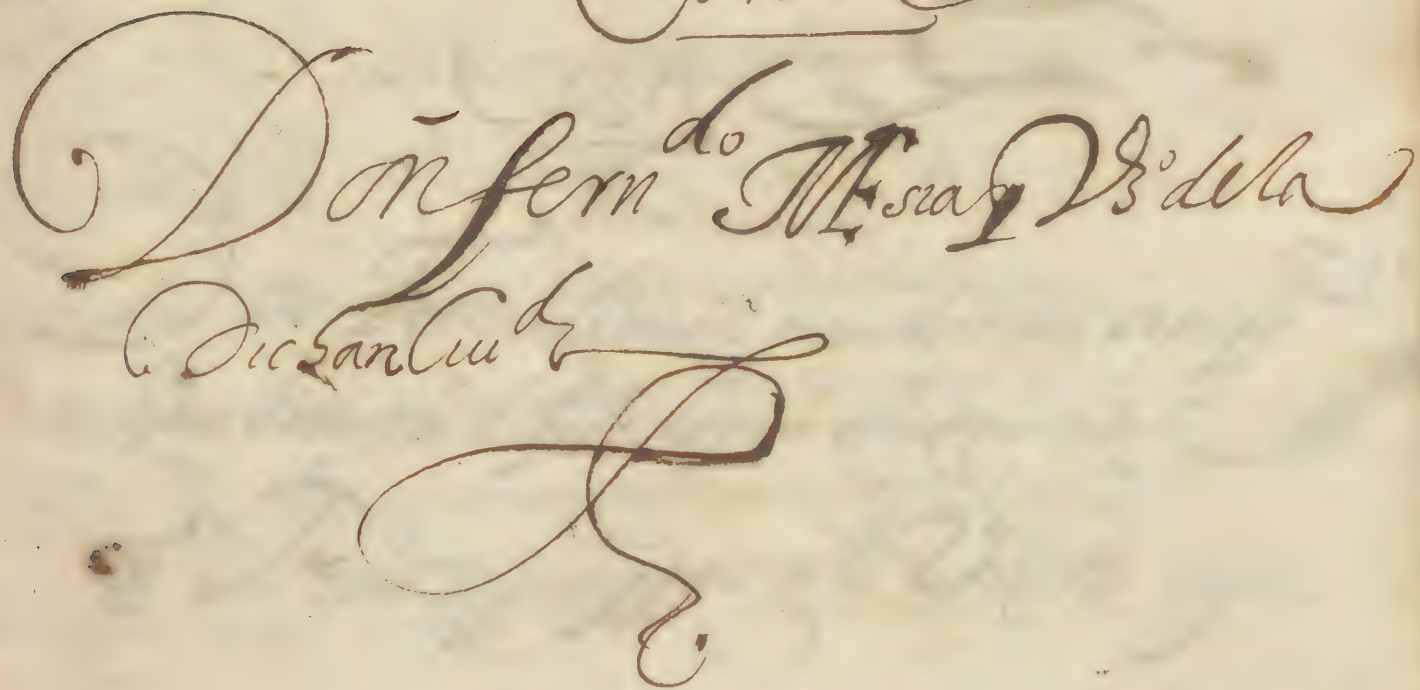 Don fern.do Mesia y Vz.o de la
Dicha Ciud